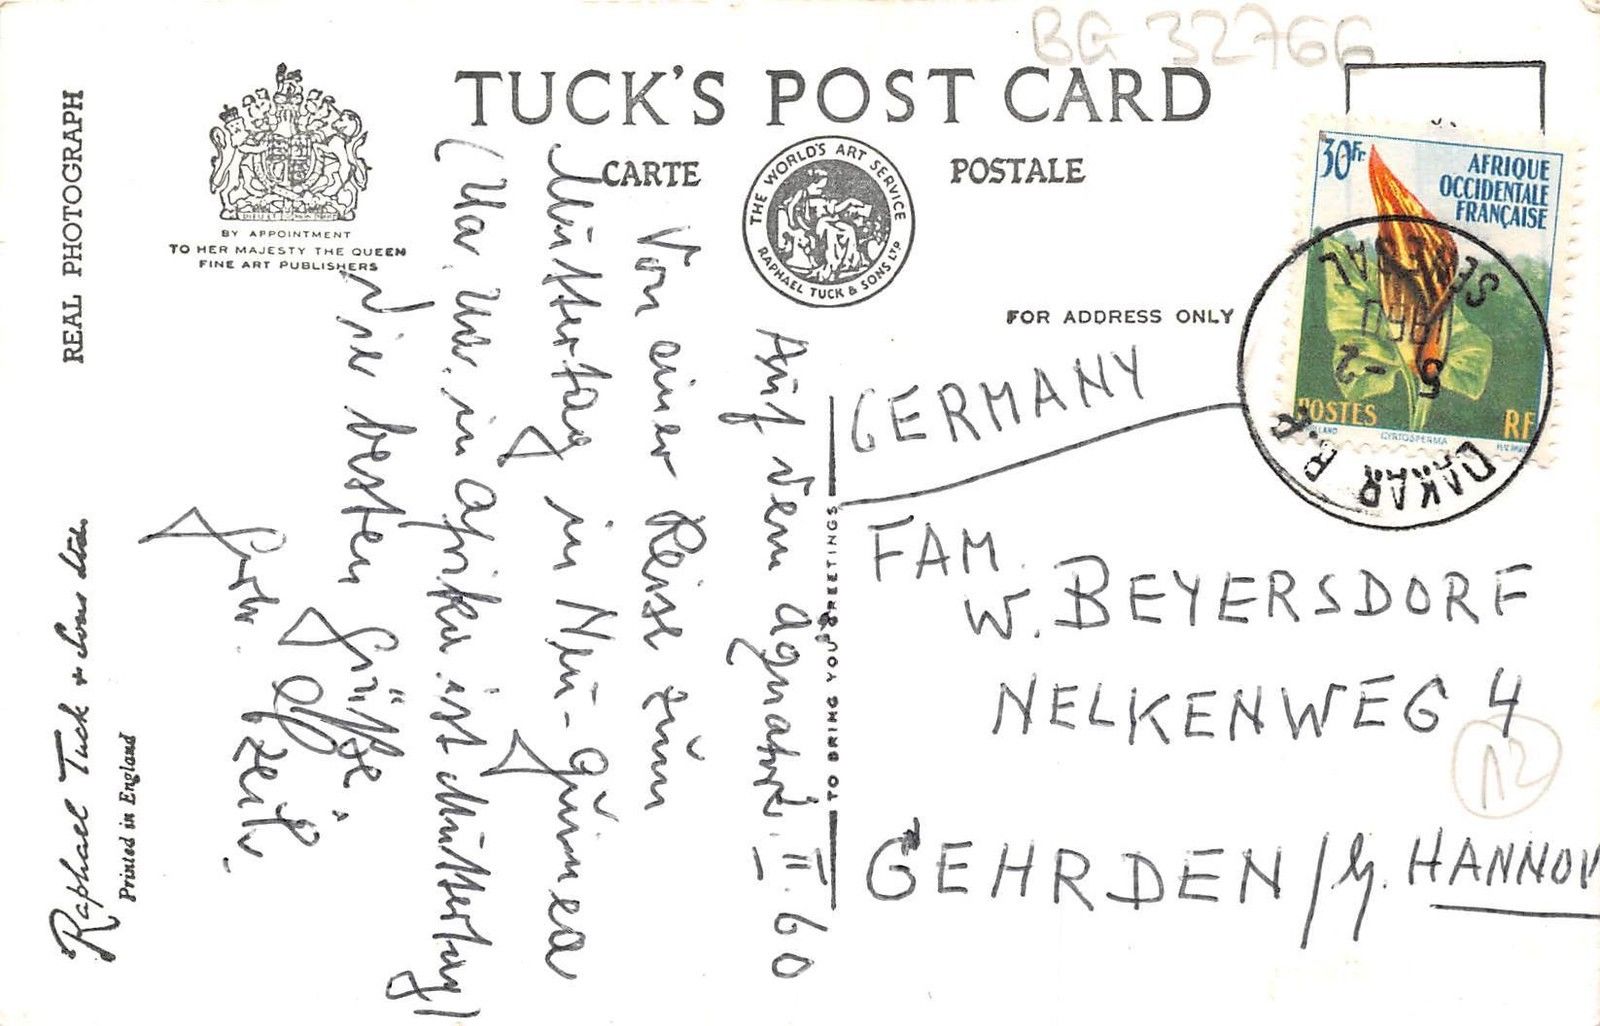 BG 32766
TUCK'S POST CARD
CARTE POSTALE
THE WORLD'S ART SERVICE
RAPHAEL TUCK & SONS LTD
REAL PHOTOGRAPH
DIEU ET MON DROIT
BY APPOINTMENT
TO HER MAJESTY THE QUEEN
FINE ART PUBLISHERS
Raphael Tuck & Sons Ltd.
Printed in England
FOR ADDRESS ONLY
TO BRING YOU GREETINGS
30Fr
AFRIQUE
OCCIDENTALE
FRANÇAISE
POSTES
RF
CYRTOSPERMA
DAKAR R.P.
5 -2
SENEGAL
Auf dem
II. 60
Von einer Reise zum
Muttertag in Neu-Guinea
in Afrika ist Muttertag)
die besten Grüße,
GERMANY
FAM.
W. BEYERSDORF
NELKENWEG 4
12
GEHRDEN / HANNOV